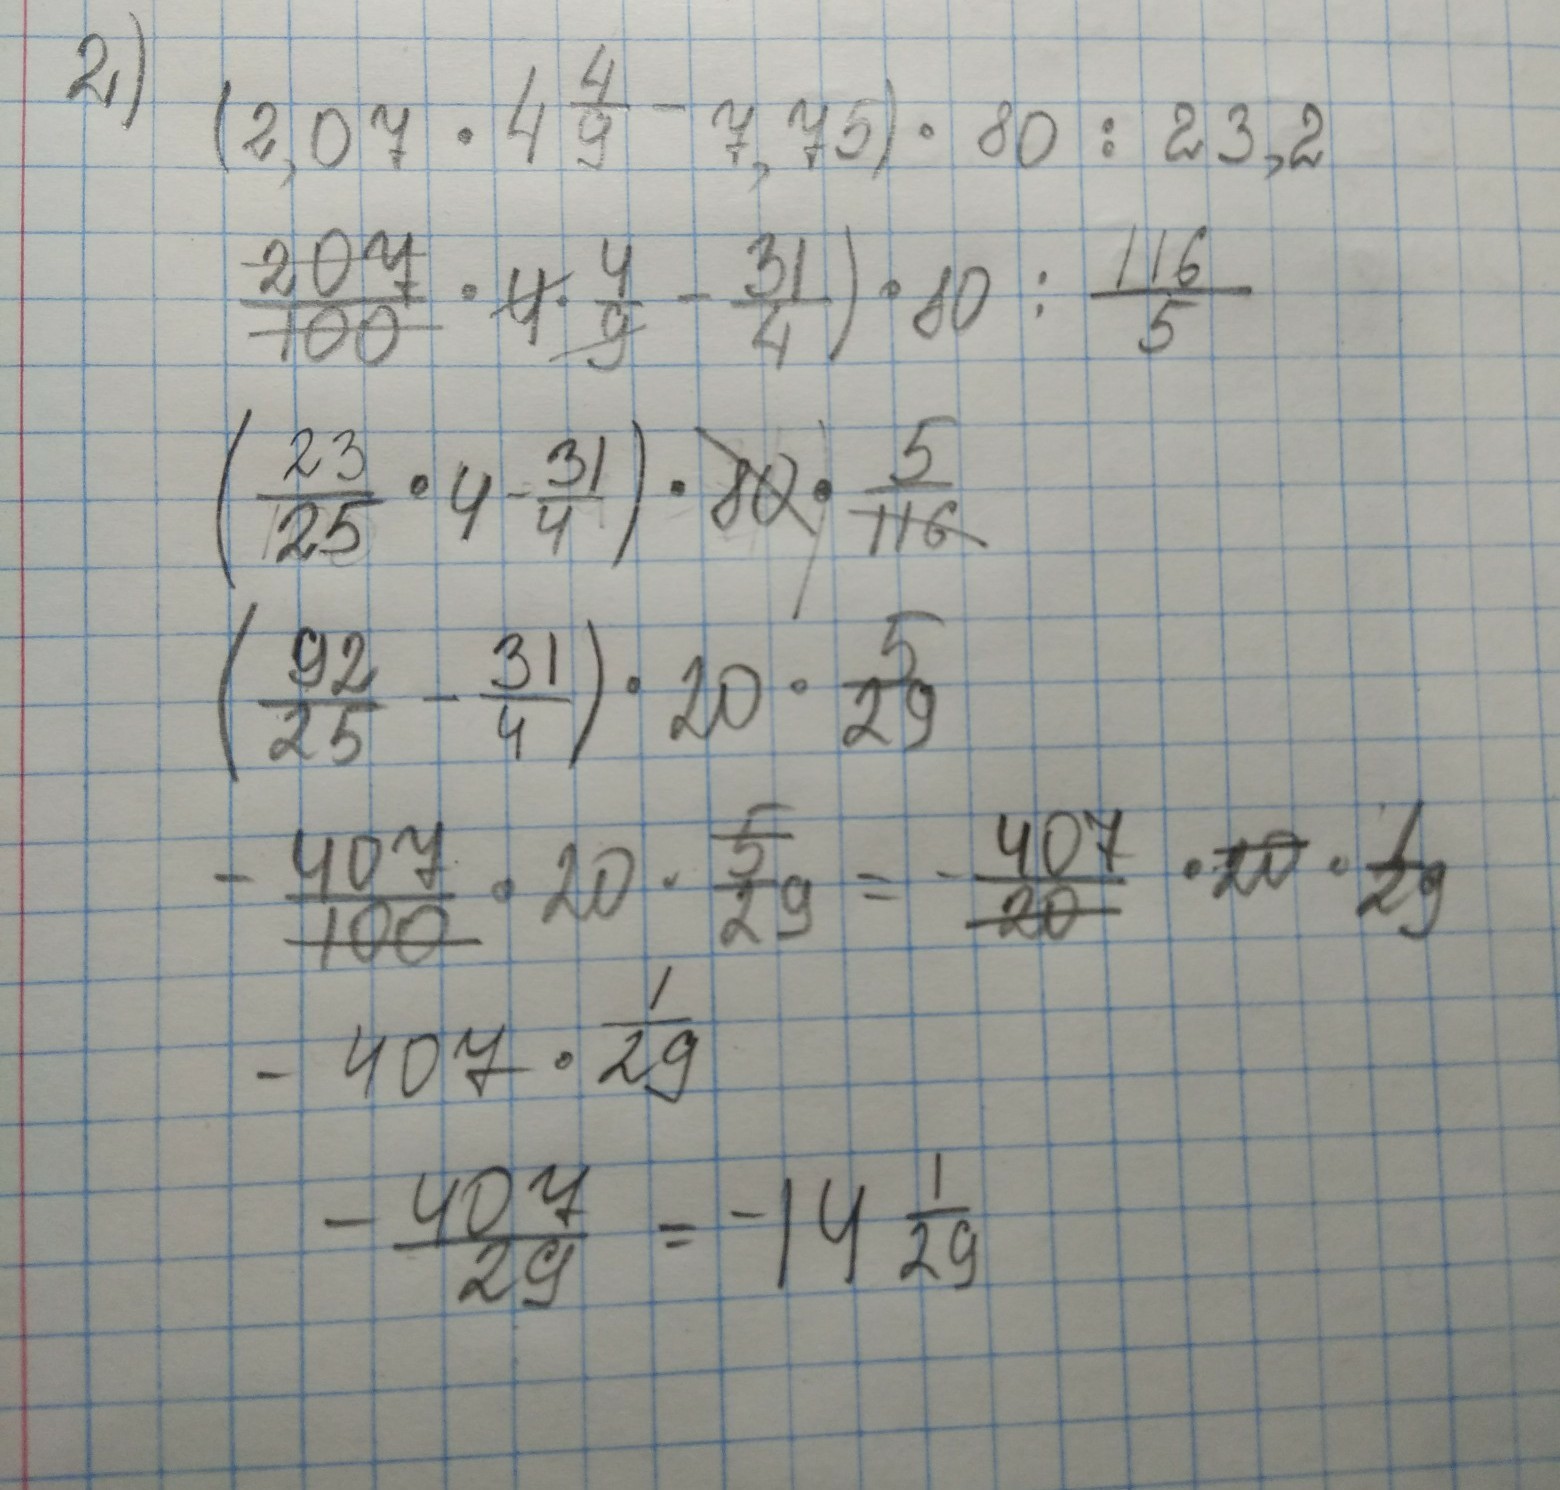 2) (2,07 · 4 4/9 - 7,75) · 80 : 23,2
207/100 · 4 · 4/9 - 31/4) · 80 : 116/5
(23/25 · 4 - 31/4) · 80 · 5/116
(92/25 - 31/4) · 20 · 5/29
- 407/100 · 20 · 5/29 = - 407/20 · 20 · 1/29
- 407 · 1/29
- 407/29 = -14 1/29